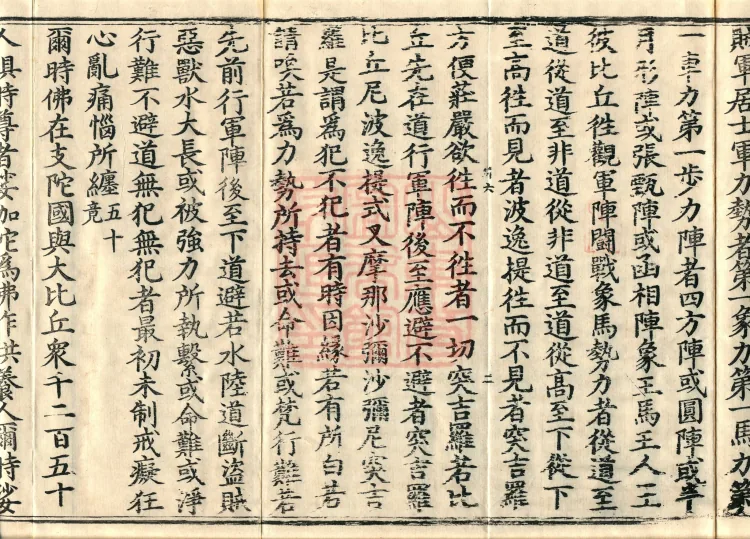 賊軍居士軍力勢者第一象力第一馬力第
一車力第一步力陣者四方陣或圓陣或半
月形陣或張甄陣或函相陣象王馬王人王
彼比丘往觀軍陣鬪戰象馬勢力者從道至
道從道至非道從非道至道從高至下從下
至高往而見者波逸提往而不見者突吉羅
方便莊嚴欲往而不往者一切突吉羅若比
丘先在道行軍陣後至應避不避者突吉羅
比丘尼波逸提式叉摩那沙彌沙彌尼突吉
羅是謂為犯不犯者有時因緣若有所白若
請喚若為力勢所持去或命難或梵行難若
先前行軍陣後至下道避若水陸道斷盜賊
惡獸水大長或被強力所執繫或命難或淨
行難不避道無犯無犯者最初未制戒癡狂
心亂痛惱所纏五十竟
爾時佛在支陀國與大比丘眾千二百五十
人俱時尊者娑伽陀為佛作供養人爾時娑
二